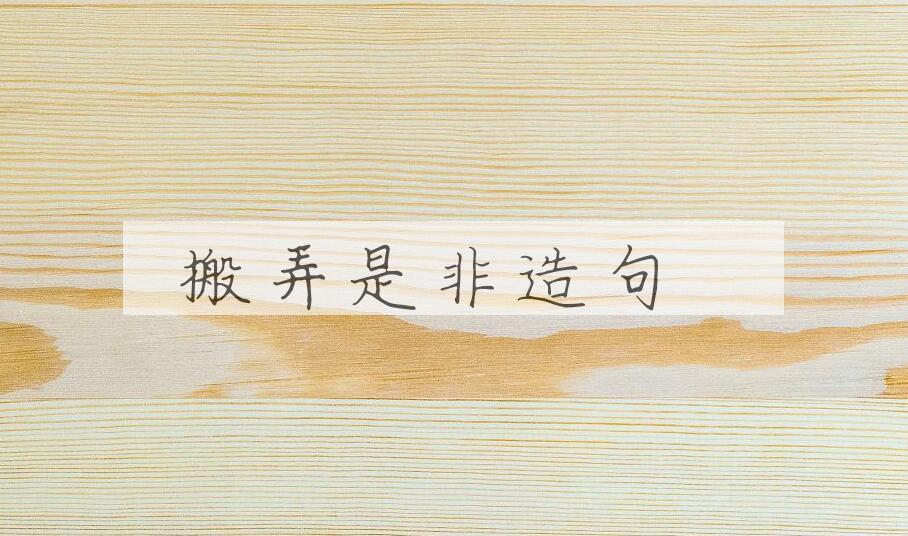 搬弄是非造句